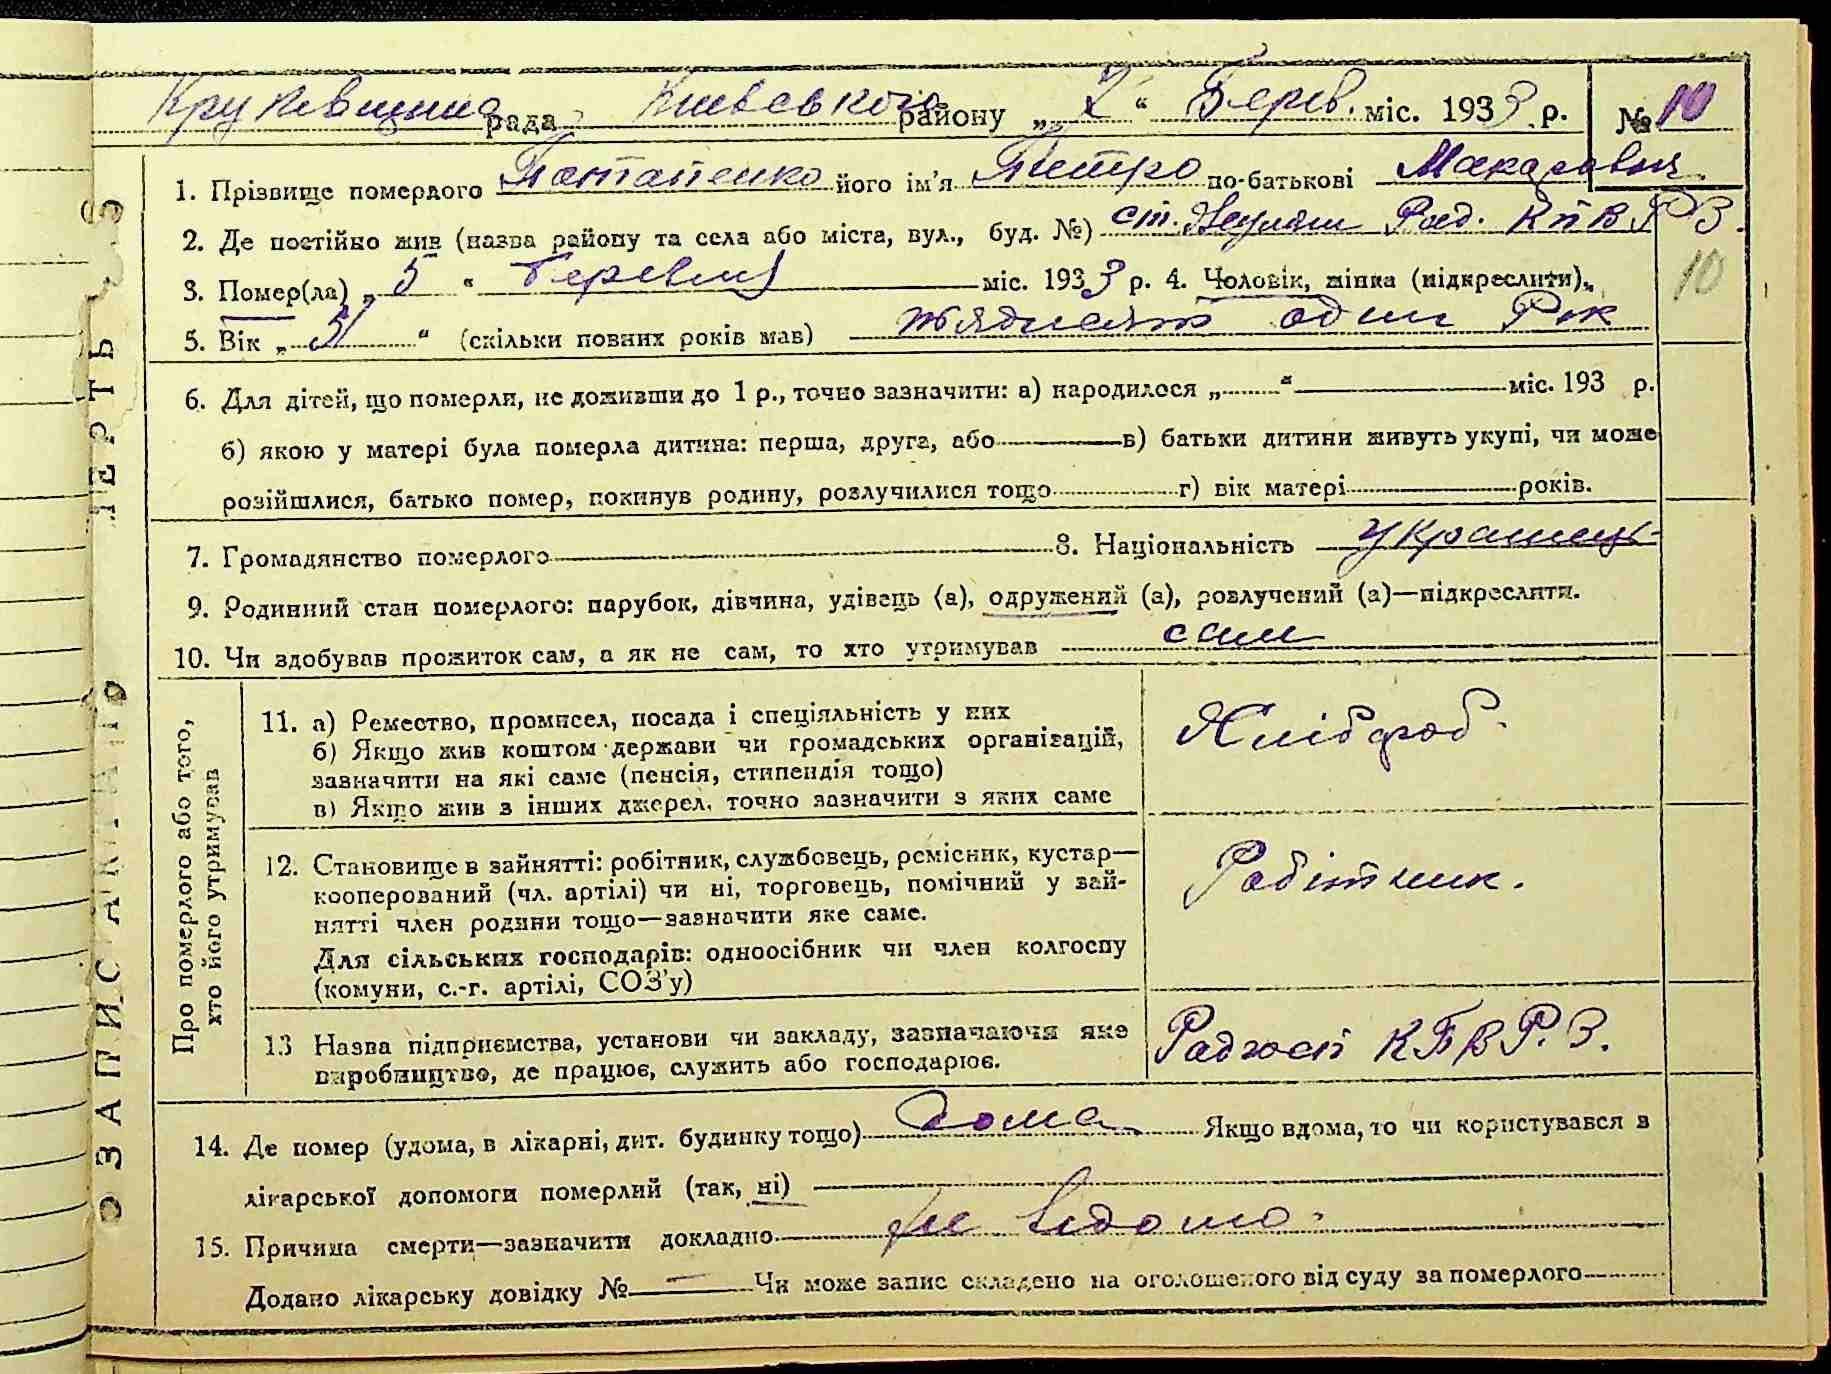 рада Київського району „ 7 “ Берез. міс. 1933 р. № 10
1. Прізвище померлого Потапенко його ім'я Петро по-батькові Макарович
2. Де постійно жив (назва району та села або міста, вул., буд. №) ст. Рад. КПВРЗ.
3. Помер(ла) „ 5 “ березня міс. 1933 р. 4. Чоловік, жінка (підкреслити)„
10
5. Вік „ 51 “ (скільки повних років мав) пядисять один Рік
6. Для дітей, що померли, не доживши до 1 р., точно зазначити: а) народилося „ “ міс. 193 р.
б) якою у матері була померла дитина: перша, друга, або в) батьки дитини живуть укупі, чи може
розійшлися, батько помер, покинув родину, розлучилися тощо г) вік матері років.
7. Громадянство померлого 8. Національність українець
9. Родинний стан померлого: парубок, дівчина, удівець (а), одружений (а), розлучений (а)—підкреслити.
10. Чи здобував прожиток сам, а як не сам, то хто утримував сам
Про померлого або того,
хто його утримував
11. а) Ремество, промисел, посада і спеціяльність у них
б) Якщо жив коштом держави чи громадських організацій,
зазначити на які саме (пенсія, стипендія тощо)
в) Якщо жив з інших джерел, точно зазначити з яких саме
Хлібороб.
12. Становище в зайнятті: робітник, службовець, ремісник, кустар—
кооперований (чл. артілі) чи ні, торговець, помічний у зай-
нятті член родини тощо—зазначити яке саме.
Для сільських господарів: одноосібник чи член колгоспу
(комуни, с.-г. артілі, СОЗ'у)
Робітник.
13 Назва підприємства, установи чи закладу, зазначаючи яке
виробництво, де працює, служить або господарює.
Радгосп КПВР.З.
14. Де помер (удома, в лікарні, дит. будинку тощо) дома Якщо вдома, то чи користувався в
лікарської допомоги померлий (так, ні)
15. Причина смерти—зазначити докладно не відомо.
Додано лікарську довідку № — Чи може запис складено на оголошеного від суду за померлого